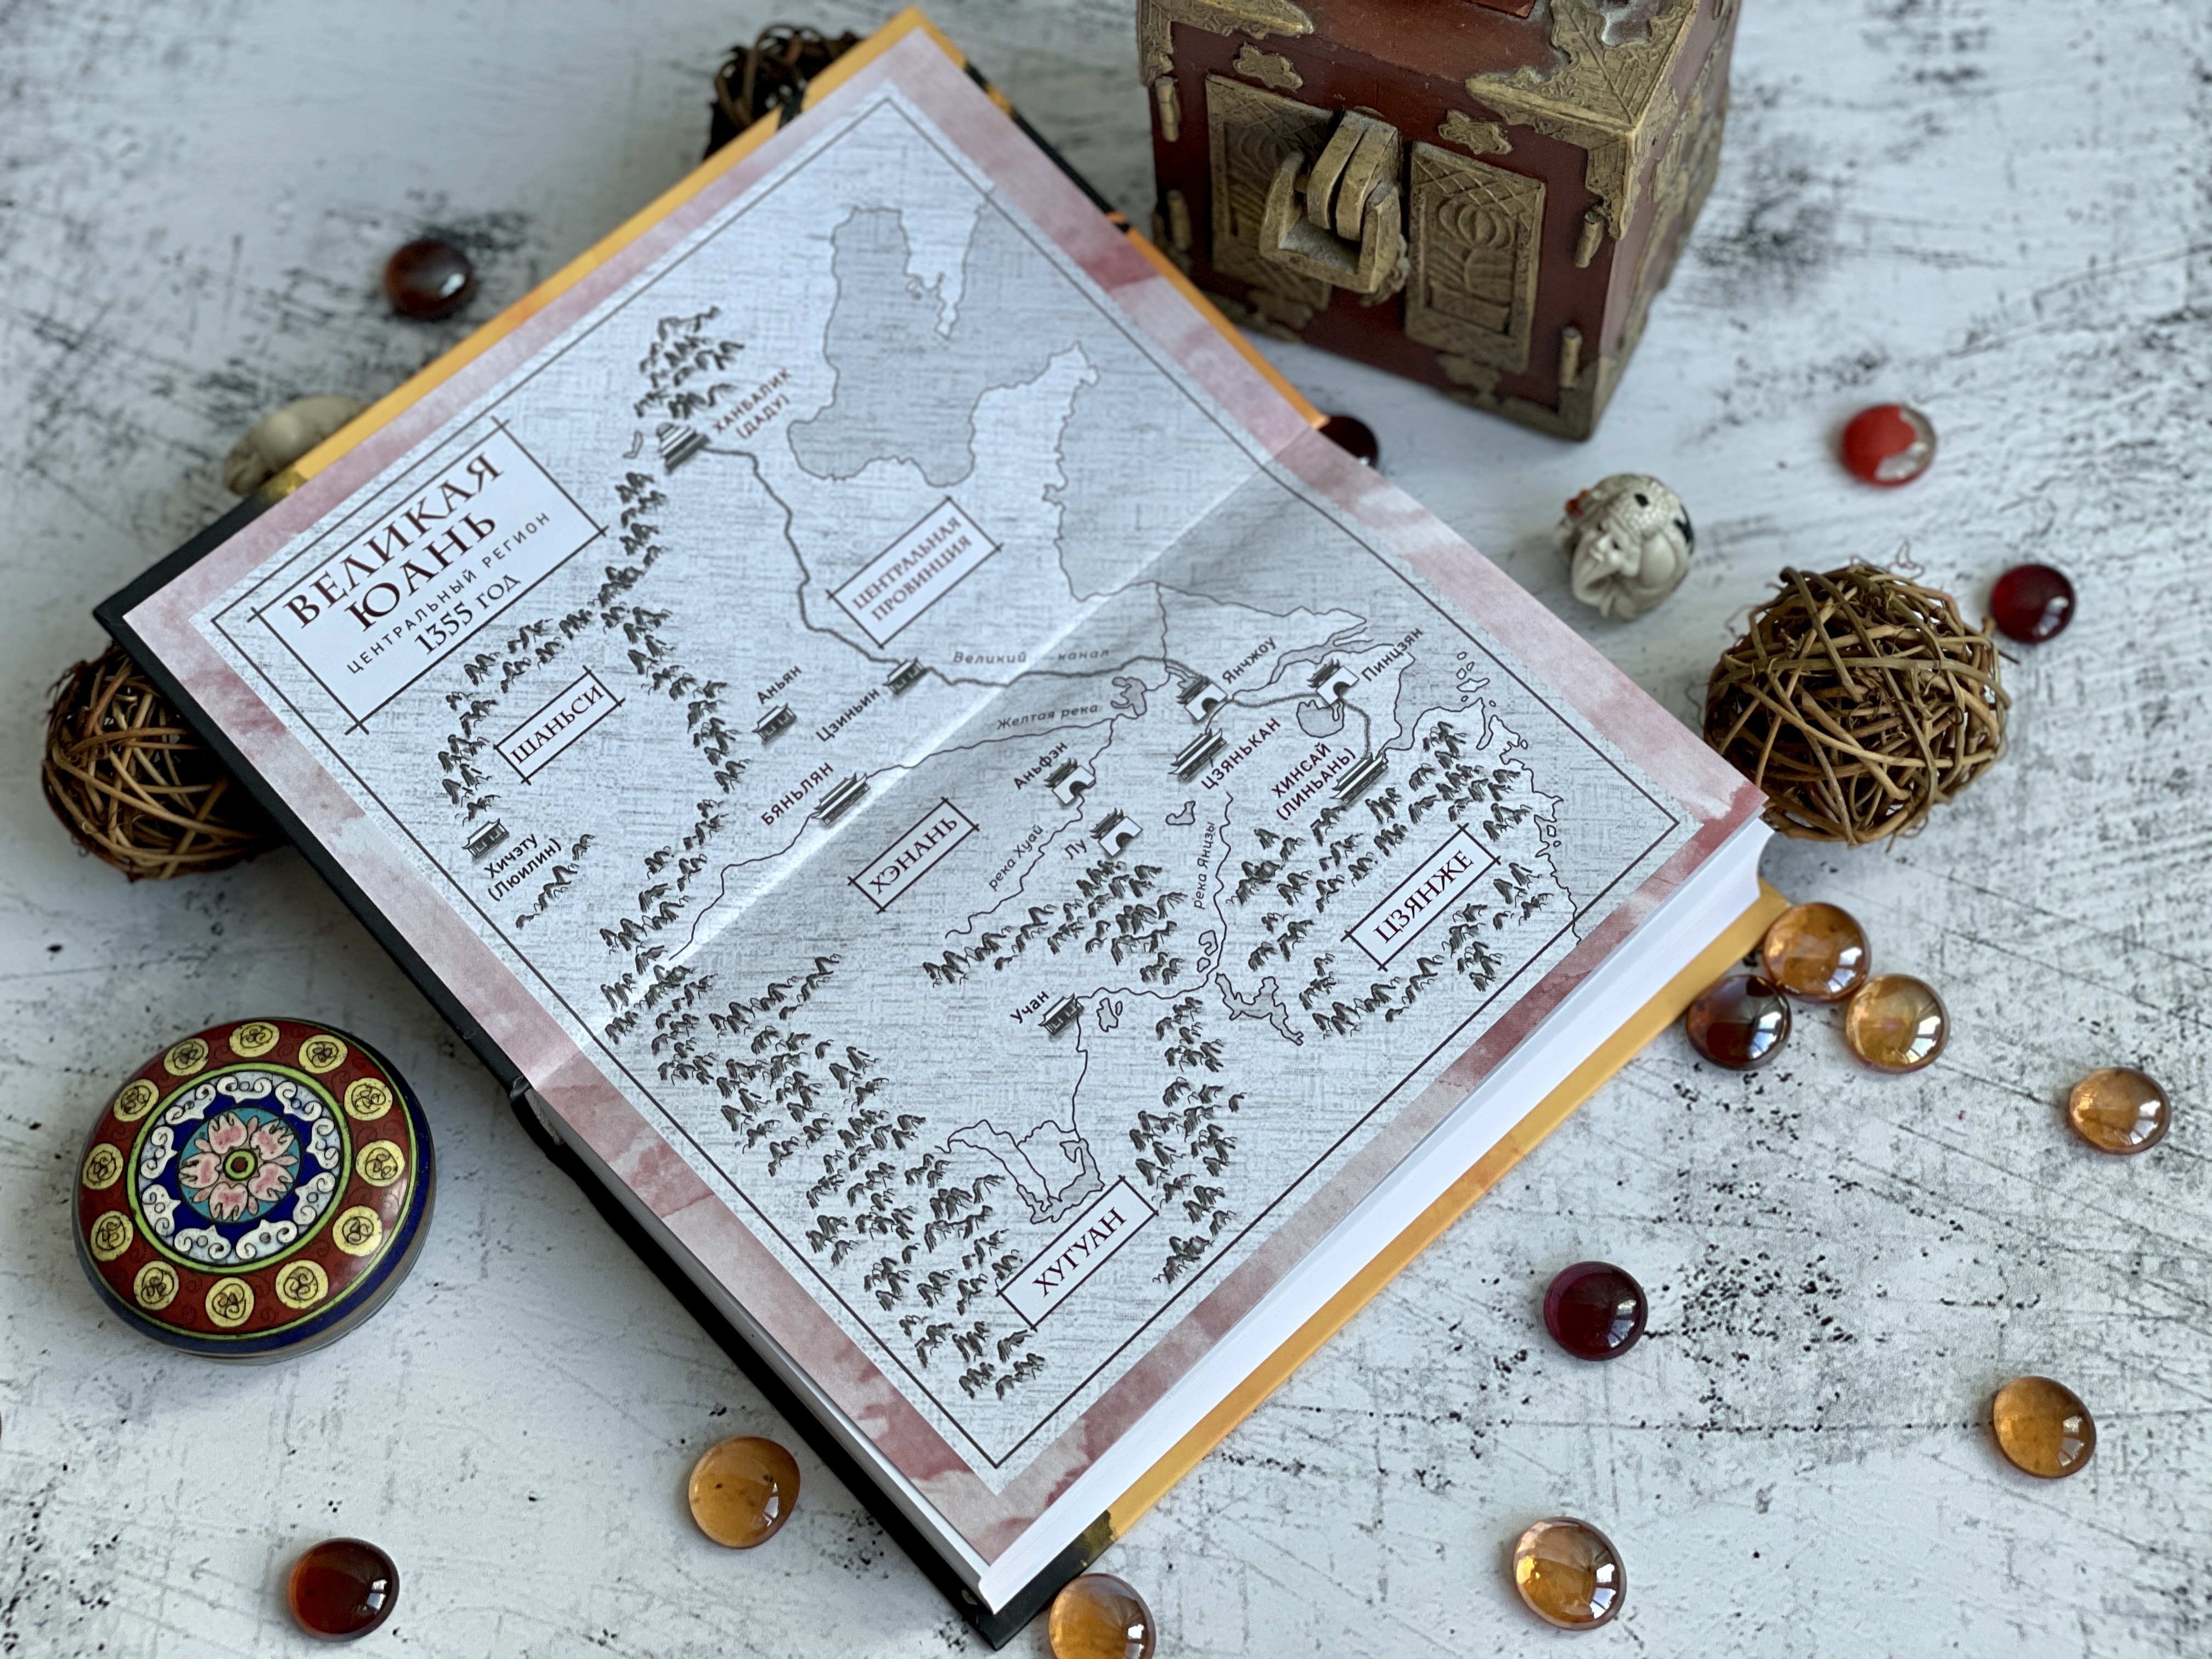 ВЕЛИКАЯ
ЮАНЬ
ЦЕНТРАЛЬНЫЙ РЕГИОН
1355 ГОД
ХАНБАЛИК
(ДАДУ)
ЦЕНТРАЛЬНАЯ
ПРОВИНЦИЯ
ШАНЬСИ
Аньян
Цзиньин
Великий канал
Янчжоу
Пинцзян
Желтая река
Хичэту
(Люилин)
БЯНЬЛЯН
Аньфэн
ЦЗЯНЬКАН
ХИНСАЙ
(ЛИНЬАНЬ)
ХЭНАНЬ
река Хуай
Лу
река Янцзы
ЦЗЯНЖЕ
Учан
ХУГУАН